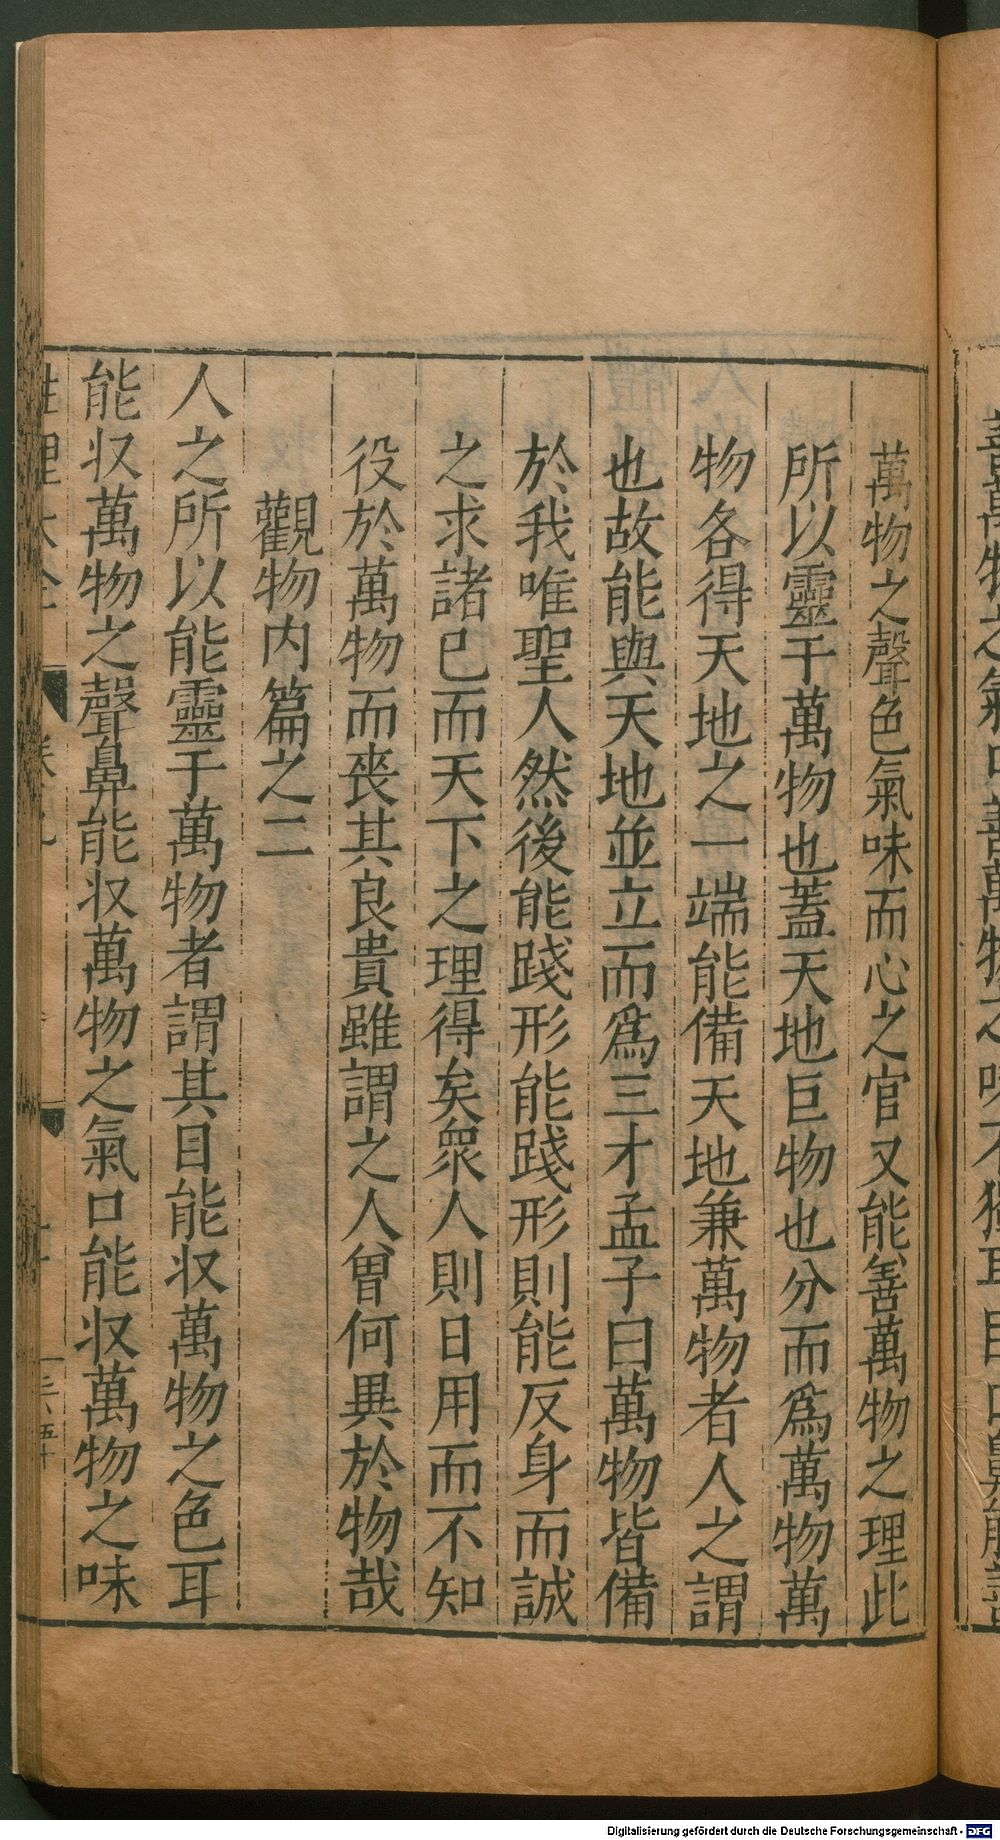 萬物之聲色氣味而心之官又能善萬物之理此
所以靈于萬物也蓋天地巨物也分而爲萬物萬
物各得天地之一端能備天地兼萬物者人之謂
也故能與天地並立而爲三才孟子曰萬物皆備
於我唯聖人然後能踐形能踐形則能反身而誠
之求諸已而天下之理得矣衆人則日用而不知
役於萬物而喪其良貴雖謂之人曾何異於物哉
觀物内篇之二
人之所以能靈于萬物者謂其目能収萬物之色耳
能収萬物之聲鼻能収萬物之氣口能収萬物之味
Digitalisierung gefördert durch die Deutsche Forschungsgemeinschaft - DFG